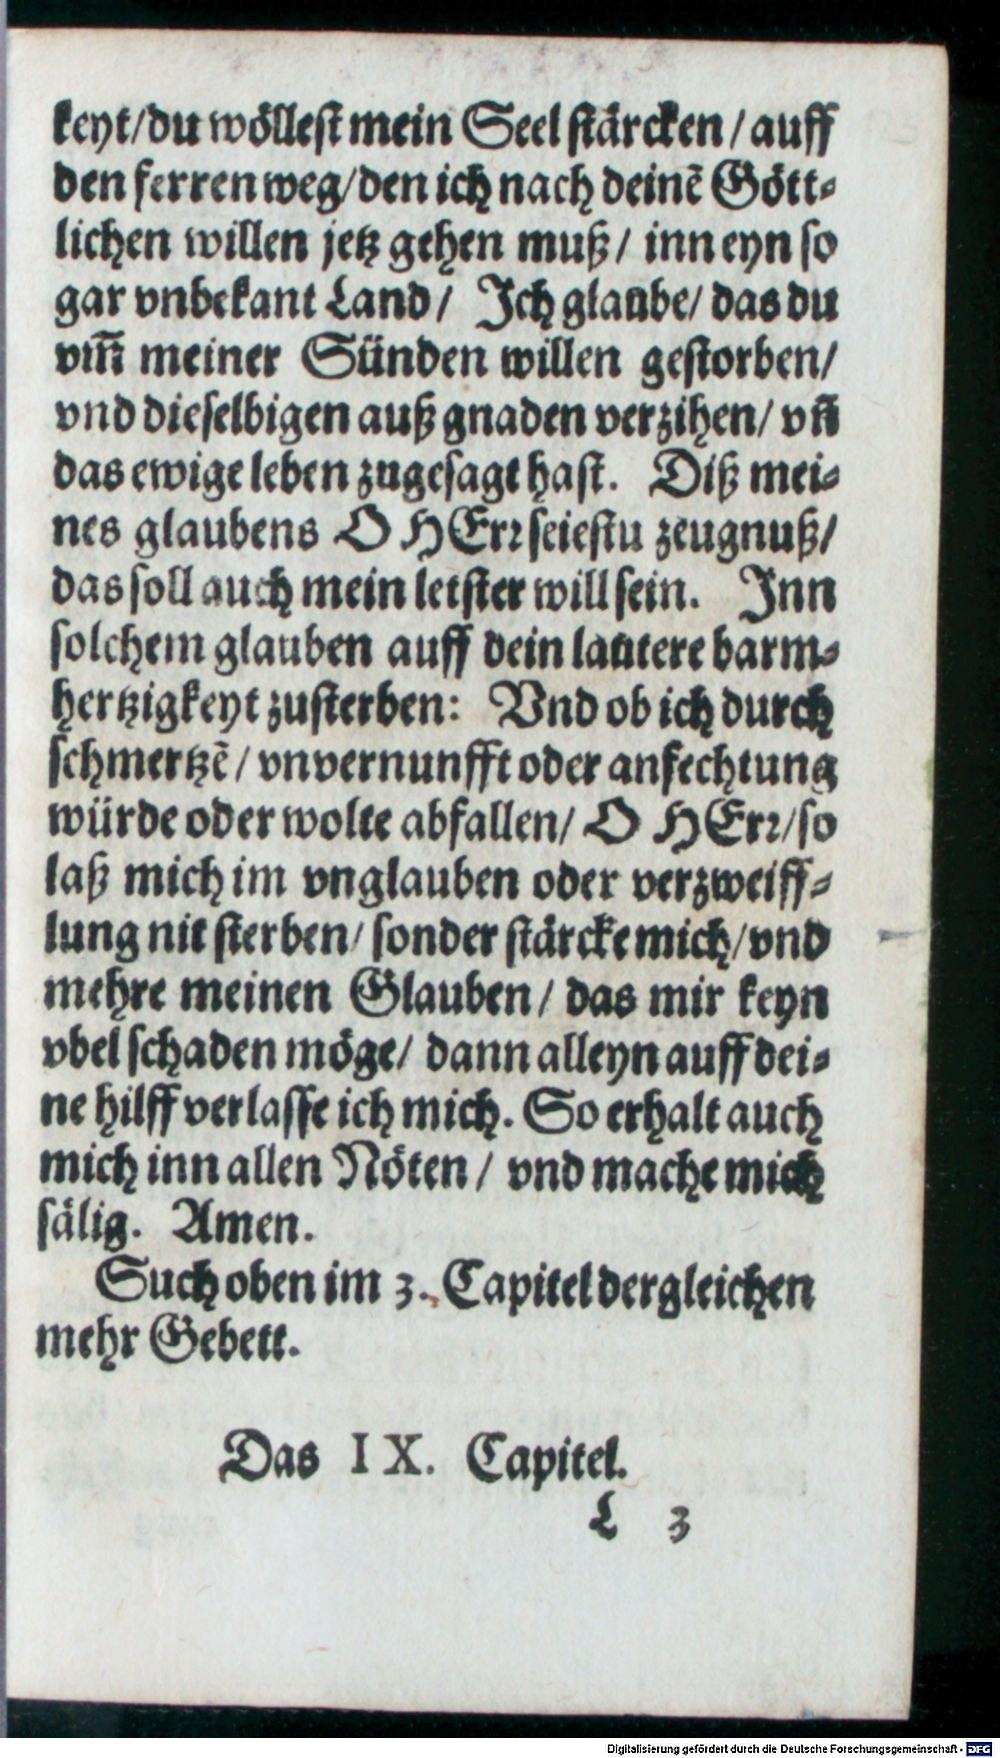 keyt/du wöllest mein Seel stärcken/auff
den ferren weg/den ich nach deinẽ Gött-
lichen willen jetz gehen muß/ inn eyn so
gar vnbekant Land/ Ich glaube/ das du
vm̃ meiner Sünden willen gestorben/
vnd dieselbigen auß gnaden verzihen/ vñ
das ewige leben zugesagt hast. Diß mei-
nes glaubens O HErꝛ seiestu zeugnuß/
das soll auch mein letster will sein. Inn
solchem glauben auff dein lautere barm-
hertzigkeyt zusterben: Vnd ob ich durch
schmertzẽ/ vnvernunfft oder anfechtung
würde oder wolte abfallen/ O HErꝛ/so
laß mich im vnglauben oder verzweiff-
lung nit sterben/ sonder stärcke mich/vnd
mehre meinen Glauben/ das mir keyn
vbel schaden möge/ dann alleyn auff dei-
ne hilff verlasse ich mich. So erhalt auch
mich inn allen Nöten/ vnd mache mich
sälig. Amen.
Such oben im 3. Capitel dergleichen
mehr Gebett.
Das IX. Capitel.
L 3
Digitalisierung gefördert durch die Deutsche Forschungsgemeinschaft - DFG